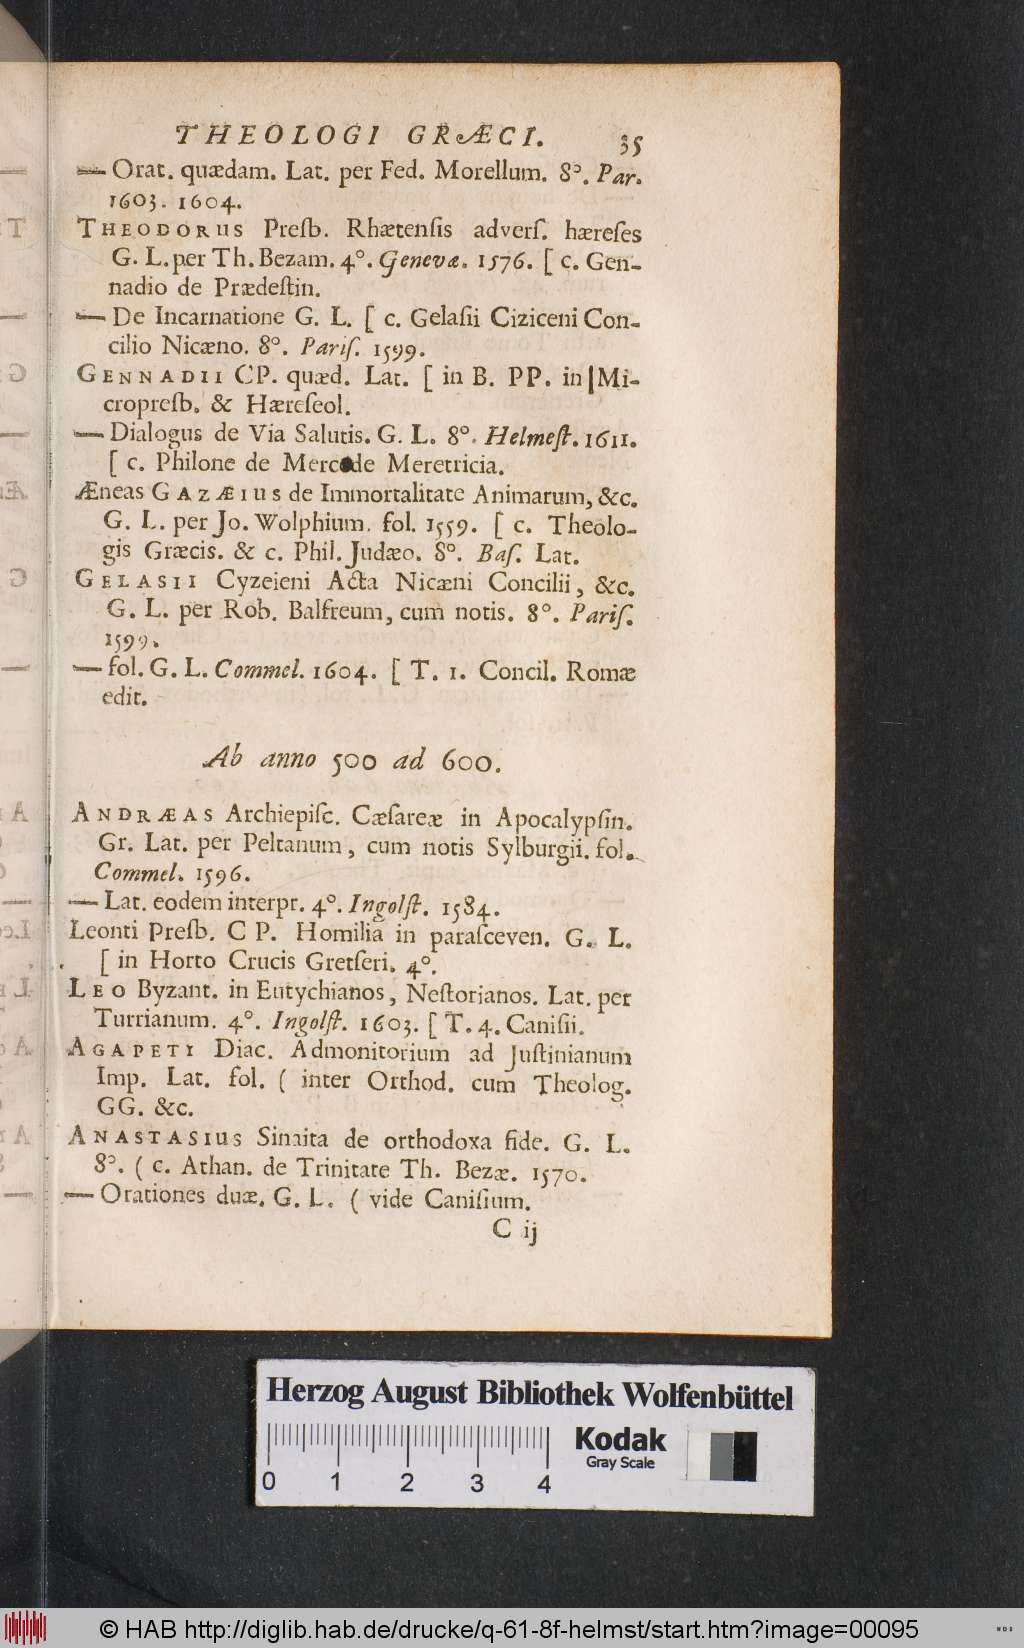 THEOLOGI GRÆCI. 35
— Orat. quædam. Lat. per Fed. Morellum. 8°. Par.
1603. 1604.
THEODORUS Presb. Rhætenſis adverſ. hæreſes
G. L. per Th. Bezam. 4°. Genevæ. 1576. [ c. Gen-
nadio de Prædeſtin.
— De Incarnatione G. L. [ c. Gelaſii Ciziceni Con-
cilio Nicæno. 8°. Pariſ. 1599.
GENNADII CP. quæd. Lat. [ in B. PP. in | Mi-
cropreſb. & Hæreſeol.
— Dialogus de Via Salutis. G. L. 8°. Helmeſt. 1611.
[ c. Philone de Mercede Meretricia.
Æneas GAZÆIUS de Immortalitate Animarum, &c.
G. L. per Jo. Wolphium. fol. 1559. [ c. Theolo-
gis Græcis. & c. Phil. Judæo. 8°. Baſ. Lat.
GELASII Cyzeieni Acta Nicæni Concilii, &c.
G. L. per Rob. Balfreum, cum notis. 8°. Pariſ.
1599.
— fol. G. L. Commel. 1604. [ T. 1. Concil. Romæ
edit.
Ab anno 500 ad 600.
ANDRÆAS Archiepiſc. Cæſareæ in Apocalypſin.
Gr. Lat. per Peltanum, cum notis Sylburgii. fol.
Commel. 1596.
— Lat. eodem interpr. 4°. Ingolſt. 1584.
Leonti Preſb. C P. Homilia in paraſceven. G. L.
[ in Horto Crucis Gretſeri. 4°.
LEO Byzant. in Eutychianos, Neſtorianos. Lat. per
Turrianum. 4°. Ingolſt. 1603. [ T. 4. Caniſii.
AGAPETI Diac. Admonitorium ad Juſtinianum
Imp. Lat. fol. ( inter Orthod. cum Theolog.
GG. &c.
ANASTASIUS Sinaita de orthodoxa fide. G. L.
8°. ( c. Athan. de Trinitate Th. Bezæ. 1570.
— Orationes duæ. G. L. ( vide Caniſium.
C ij
Herzog August Bibliothek Wolfenbüttel
Kodak
Gray Scale
0 1 2 3 4
© HAB http://diglib.hab.de/drucke/q-61-8f-helmst/start.htm?image=00095